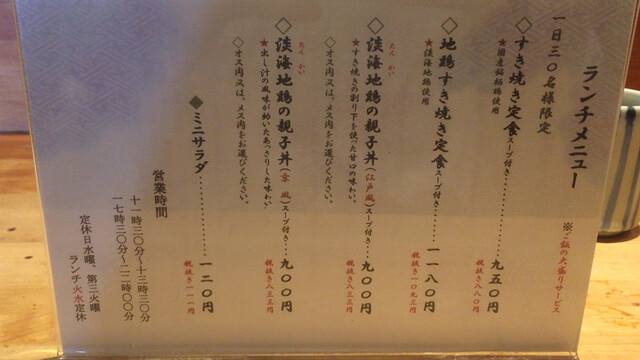 ランチメニュー
※ご飯の大盛りサービス
一日三〇名様限定
◇すき焼き定食スープ付き……九五〇円
税抜き八八〇円
★国産銘柄鶏使用
◇地鶏すき焼き定食スープ付き…一一八〇円
税抜き一〇九三円
★淡海地鶏使用
◇淡海地鶏の親子丼(江戸風)スープ付き…九〇〇円
たん かい
税抜き八三三円
★すき焼きの割り下を使った甘口の味わい。
◇オス肉又は、メス肉をお選びください。
◇淡海地鶏の親子丼(京風)スープ付き…九〇〇円
たん かい
税抜き八三三円
★出し汁の風味が効いたあっさりした味わい
◇オス肉又は、メス肉をお選びください。
◆ミニサラダ……………一二〇円
税抜き一一一円
営業時間
十一時三〇分～十三時三〇分
一七時三〇分～二二時〇〇分
定休日水曜、第三火曜
ランチ火水定休